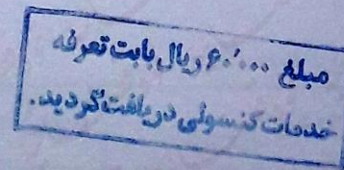 مبلغ ۶۰٬۰۰۰ ریال بابت تعرفه
خدمات کنسولی دریافت گردید.